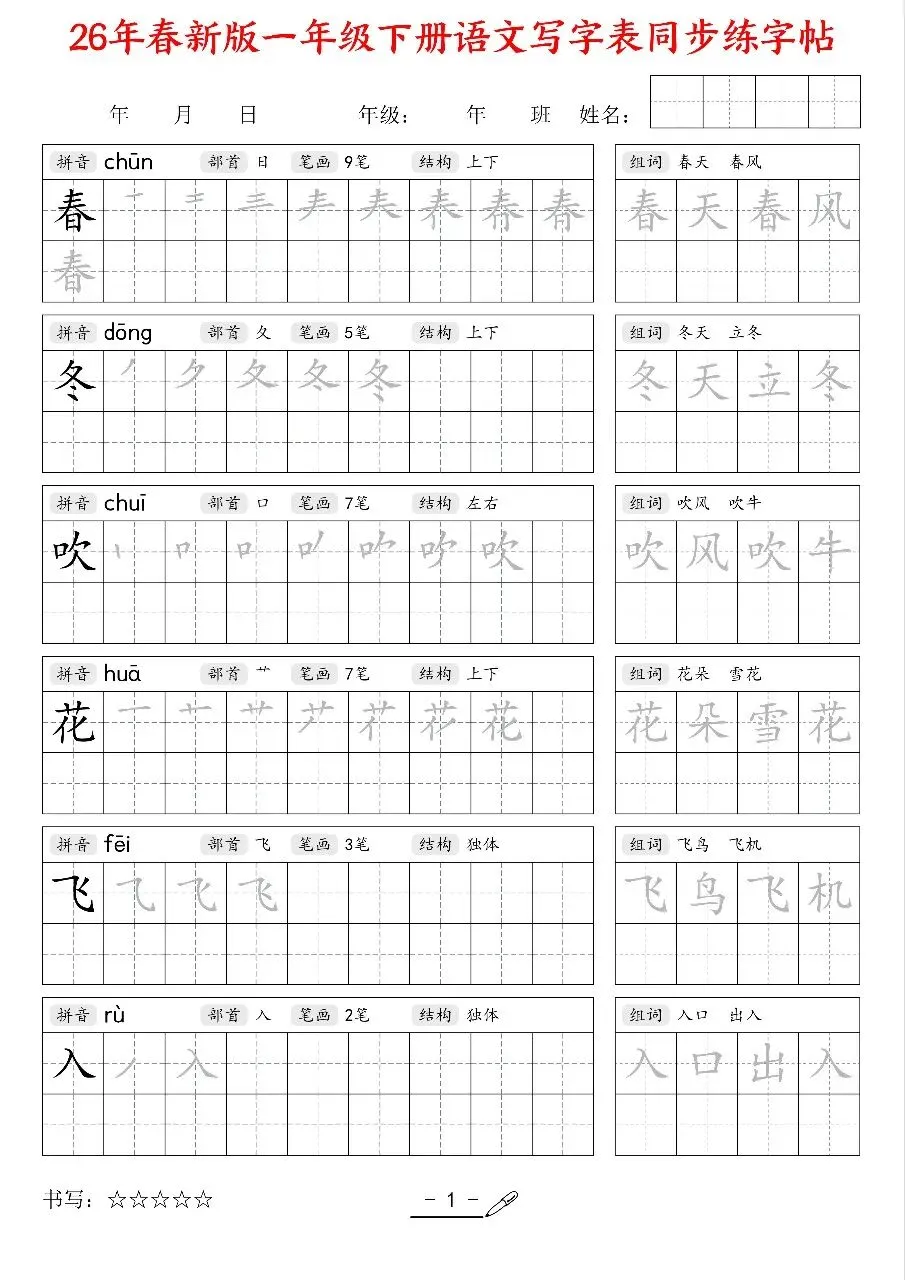 26年春新版一年级下册语文写字表同步练字帖
年 月 日 年级： 年 班 姓名：
拼音 chūn 部首 日 笔画 9笔 结构 上下 组词 春天 春风
春 春 春 天 春 风
春
拼音 dōng 部首 夂 笔画 5笔 结构 上下 组词 冬天 立冬
冬 冬 冬 天 立 冬
拼音 chuī 部首 口 笔画 7笔 结构 左右 组词 吹风 吹牛
吹 吹 吹 风 吹 牛
拼音 huā 部首 艹 笔画 7笔 结构 上下 组词 花朵 雪花
花 花 花 朵 雪 花
拼音 fēi 部首 飞 笔画 3笔 结构 独体 组词 飞鸟 飞机
飞 飞 飞 鸟 飞 机
拼音 rù 部首 入 笔画 2笔 结构 独体 组词 入口 出入
入 入 入 口 出 入
书写：☆☆☆☆☆ - 1 -